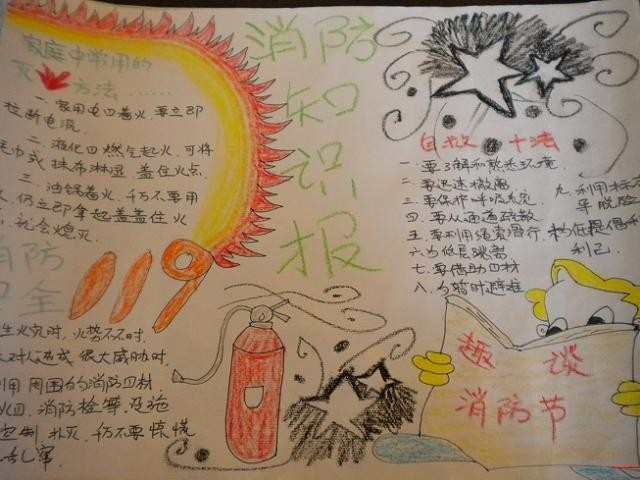 家庭中常用的
灭火方法……
一.家用电四着火,要立即
拉断电流.
二.液化四燃气起火.可将
毛巾或抹布淋湿.盖住火点.
三.油锅着火.千万不要用
仍立即拿起盖盖住火
就会熄灭.
消防知识报
自救 十法
一.要了解和熟悉环境
二.要迅速撤离
三.要保护呼吸系统
四.要从通道疏散
五.要利用绳索滑行.
六.为低层跳离
七.要借助四材
八.为暂时避难
九.利用标
利己.
消防
安全
119
生火灾时,火势不大时.
对人造成很大威胁时.
利用周围的消防四材
火四.消防栓等设施
控制扑灭.千仍不要惊慌
乱
趣谈
消防节